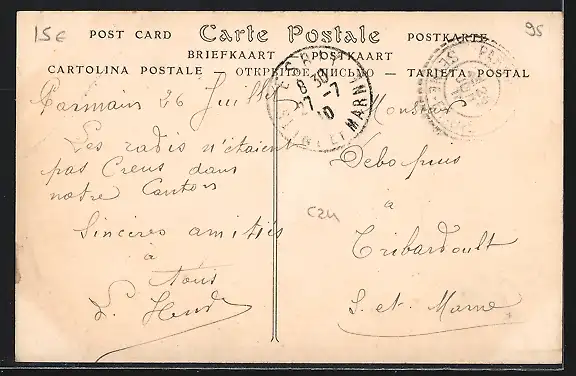 15€
95
POST CARD Carte Postale POSTKARTE
BRIEFKAART — POSTKAART
CARTOLINA POSTALE — ОТКРЫТОЕ ПИСЬМО — TARJETA POSTAL
8 30
27 -7
10
SEINE ET MARNE
Parmain 26 Juillet
Les radis n'étaient
pas Creus dans
notre Canton
Sincères amitiés
à
tous
Monsieur
Debo
à
Tribardoult
S. et. Marne
C24